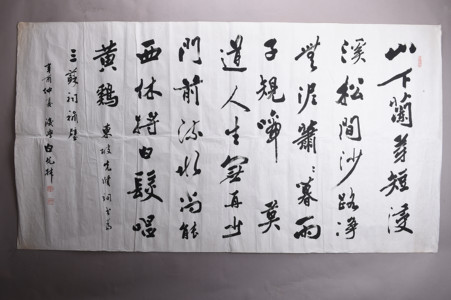 山下蘭芽短浸
溪松間沙路淨
無泥蕭〻暮雨
子規啼 莫
道人生無再少
門前流水尚能
西休將白髮唱
黃鷄
東坡先生詞書為
三蘇祠補壁
辛酉仲春